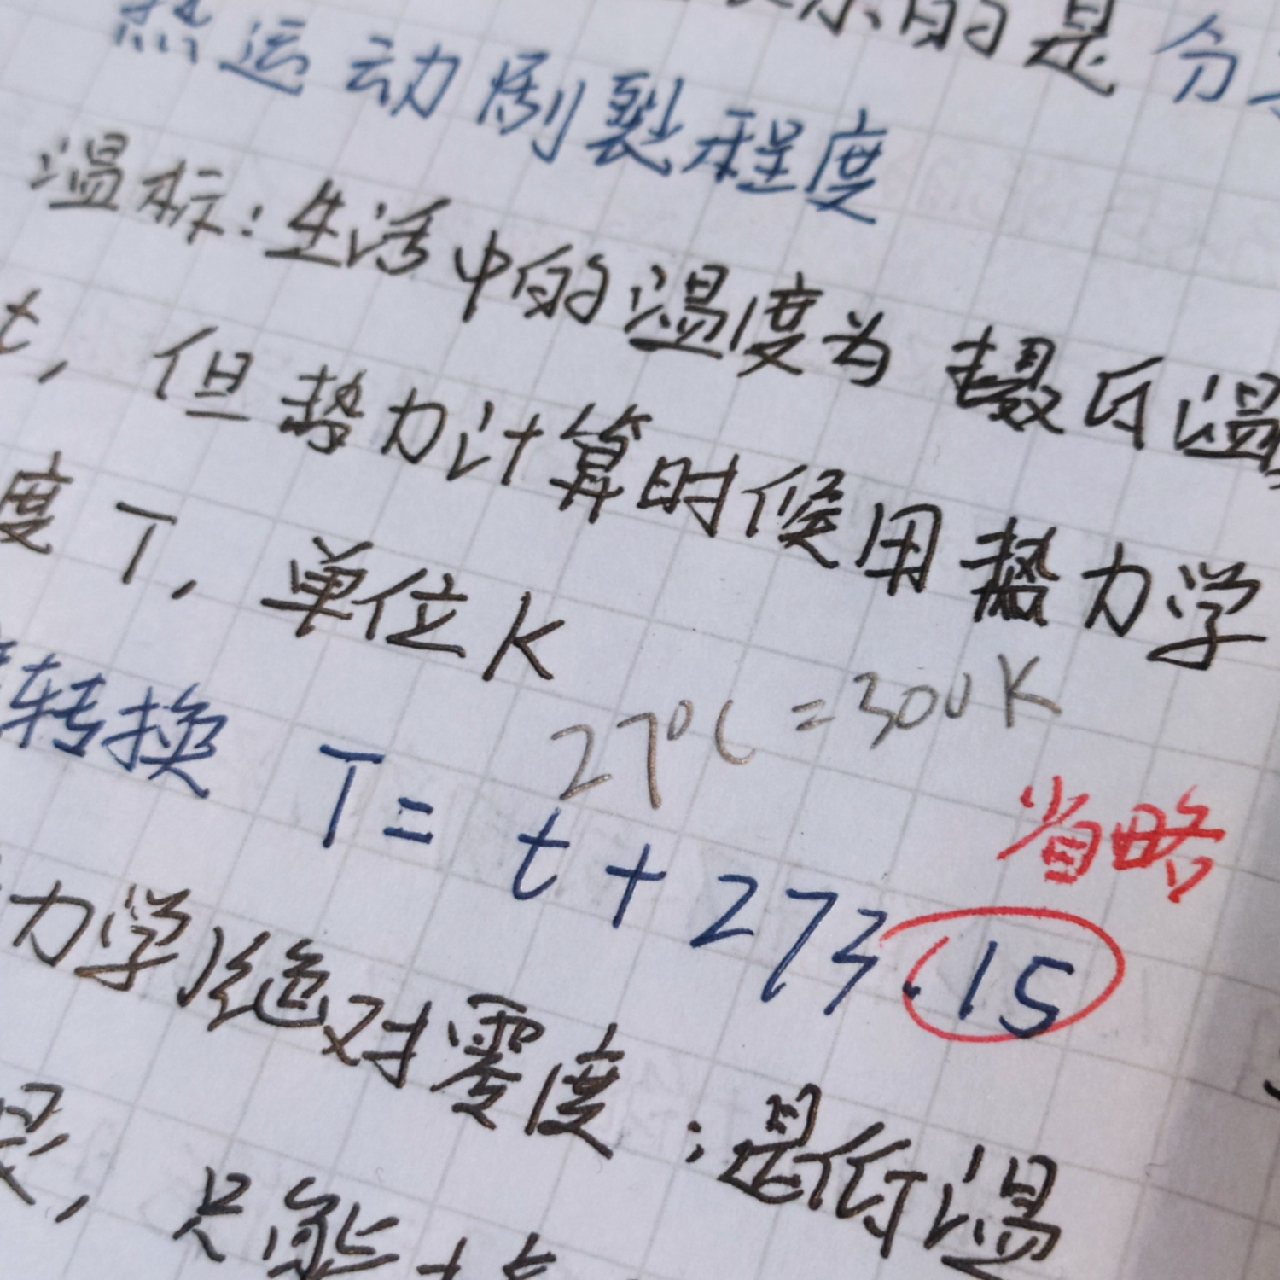 的是分
热运动剧裂程度
温标:生活中的温度为摄氏温
t,但热力计算时候用热力学
度T,单位K
27°C=300K
转换 T=t+273.15
省略
力学绝对零度:是低温
只能